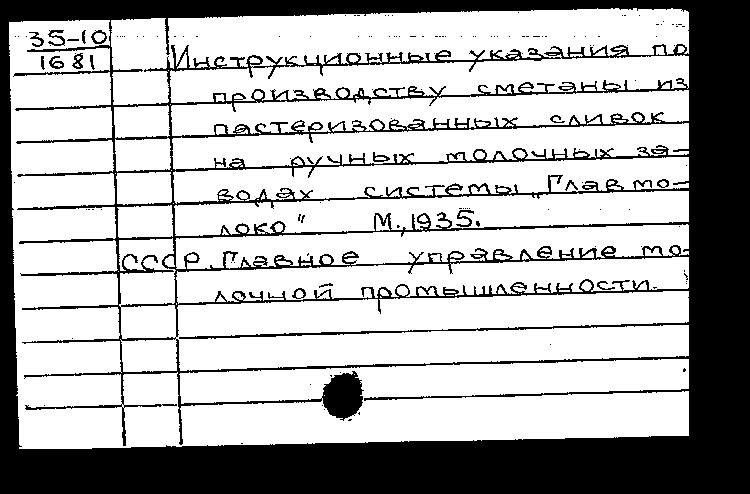 35-10
1681
Инструкционные указания по
производству сметаны из
пастеризованных сливок
на ручных молочных за-
водах системы „Главмо-
локо" М.,1935.
СССР. Главное управление мо-
лочной промышленности.